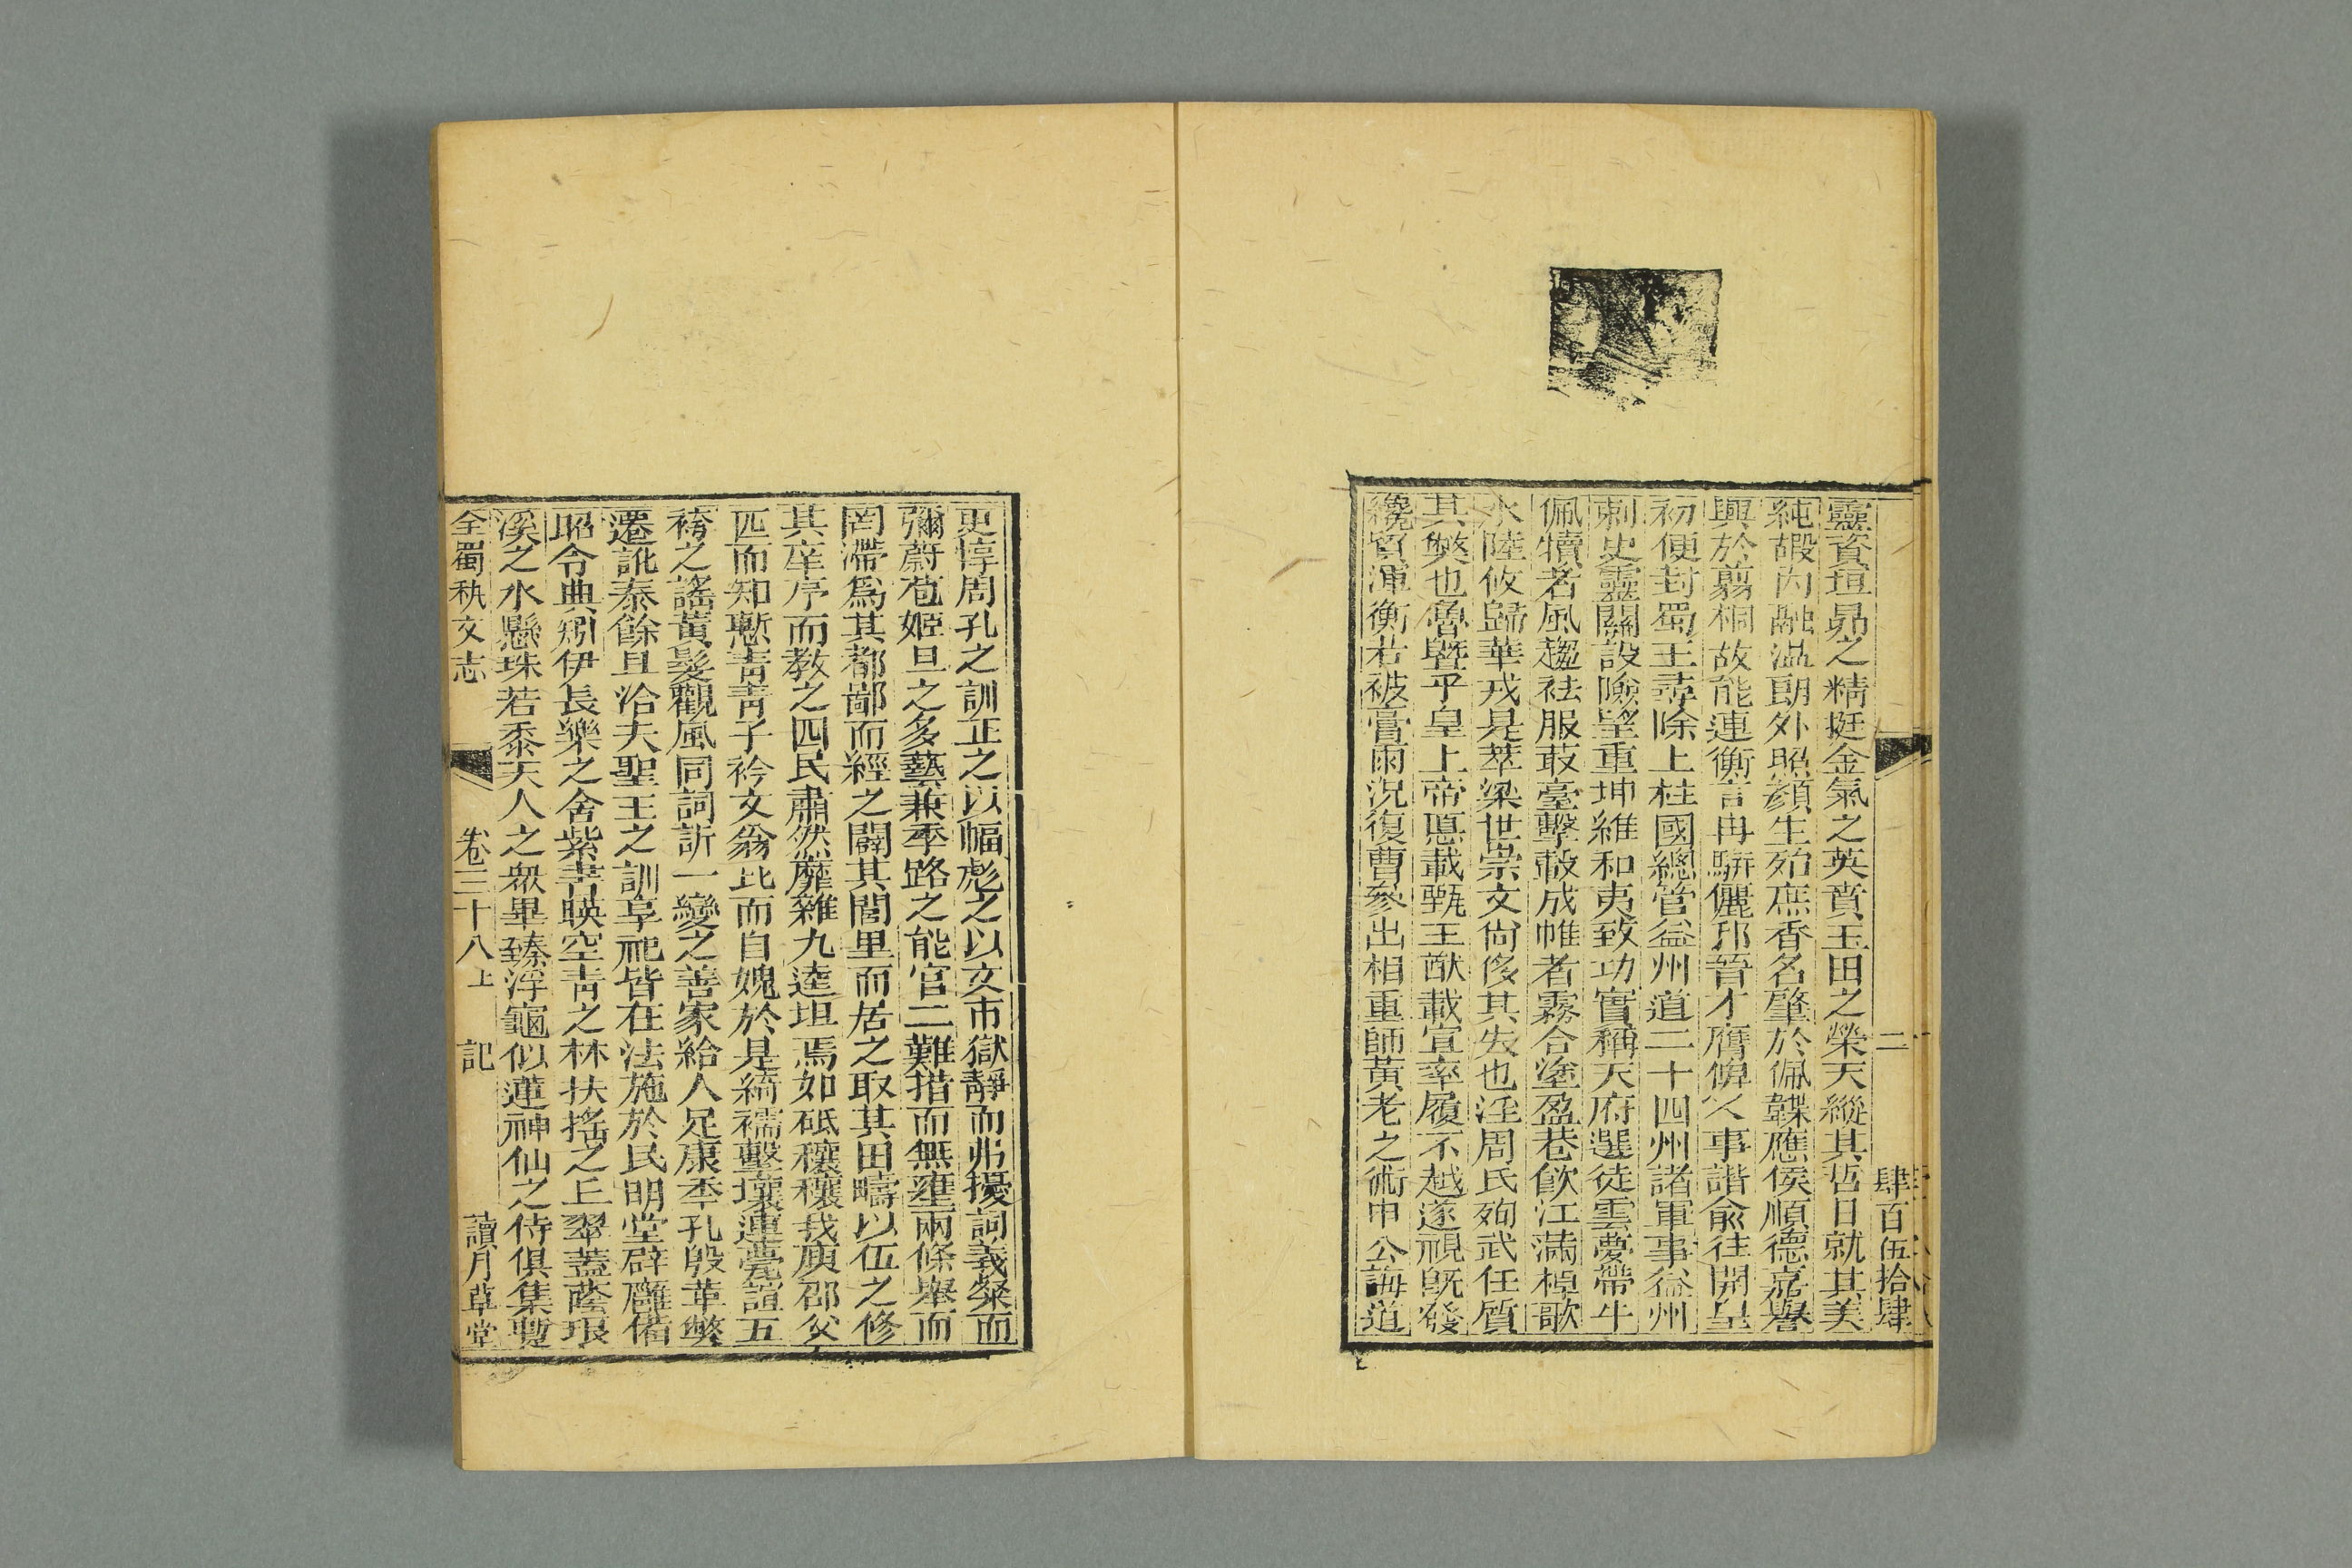 二 肆百伍拾肆
靈資垣昴之精挺金氣之英賁玉田之榮天縱其哲日就其美
純嘏內融溫朗外照顏生殆庶香名肇於佩韘應侯順德嘉譽
興於翦桐故能連衡言冉騈儷邢晉才膺俾乂事諧俞往開皇
初便封蜀王尋除上柱國總管益州道二十四州諸軍事益州
刺史靈關設險望重坤維和夷致功實稱天府選徒雲夢帶牛
佩犢者風趨袪服菆臺擊轂成帷者霧合塗盈巷飮江滿棹歌
水陸攸歸華戎是萃梁世崇文尙侈其失也淫周氏殉武任質
其獘也魯曁乎皇上帝悳載甄王猷載宣率履不越遂視旣發
纔貿渾衡若被膏雨況復曹參出相重師黃老之術申公誨道
更惇周孔之訓正之以幅彪之以文市獄靜而弗擾詞義粲而
彌蔚苞姬旦之多藝兼季路之能官二難措而無壅兩條舉而
罔滯爲其都鄙而經之闢其閭里而居之取其田疇以伍之修
其庠序而教之四民肅然靡雜九逵坦焉如砥穰穰我庾邵父
匹而知慙青青子衿文翁比而自媿於是綺襦擊壤連甍誼五
袴之謠黃髮觀風同詞訢一變之善家給人足康季孔殷革獘
遷訛泰餘且洽夫聖王之訓阜祀皆在法施於民明堂辟廱備
昭令典矧伊長樂之舍紫書暎空青之林扶搖之丘翠蓋蔭琅
溪之水懸珠若黍天人之眾畢臻浮龜似蓮神仙之侍俱集蹔
全蜀秇文志 卷三十八上 記 讀月草堂